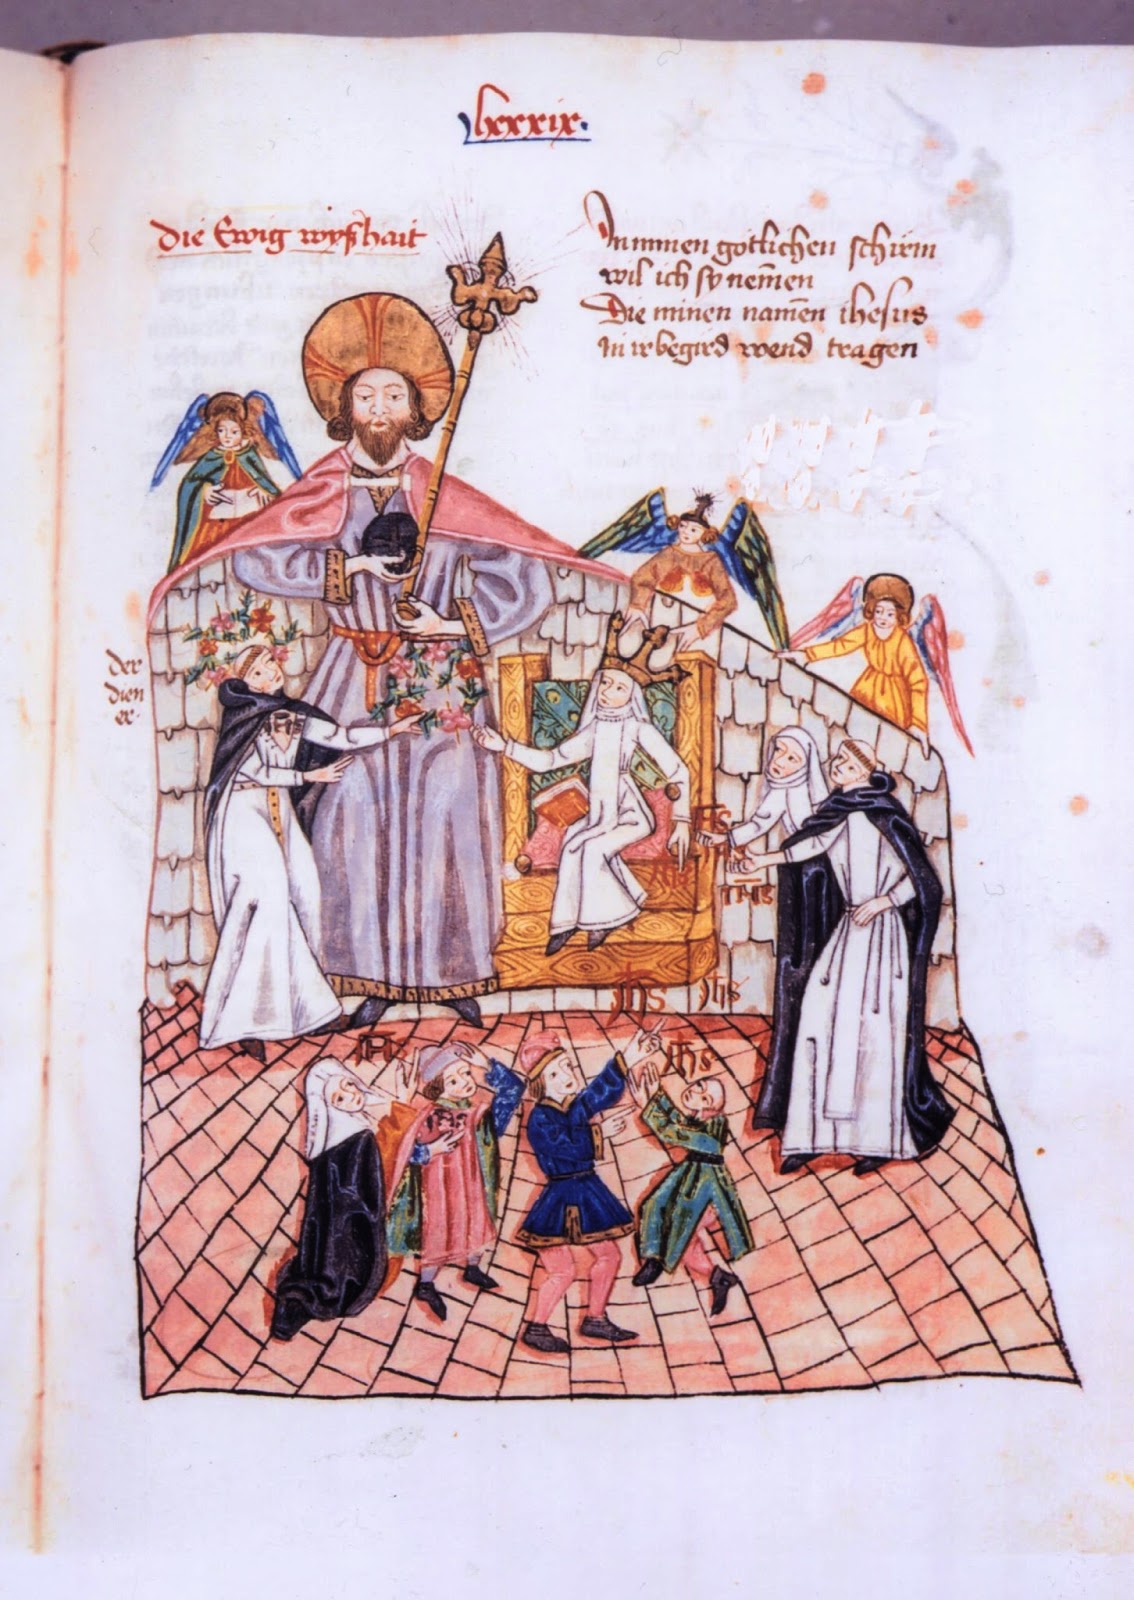 lxxxix.
die Ewig wyßhait
In minen götlichen schirm
wil ich sy nem̄en
Die minen nam̄en ihesus
in ir begird wend tragen
der
dien
er.
IHS
IHS
IHS
IHS
IHS
IHS
IHS